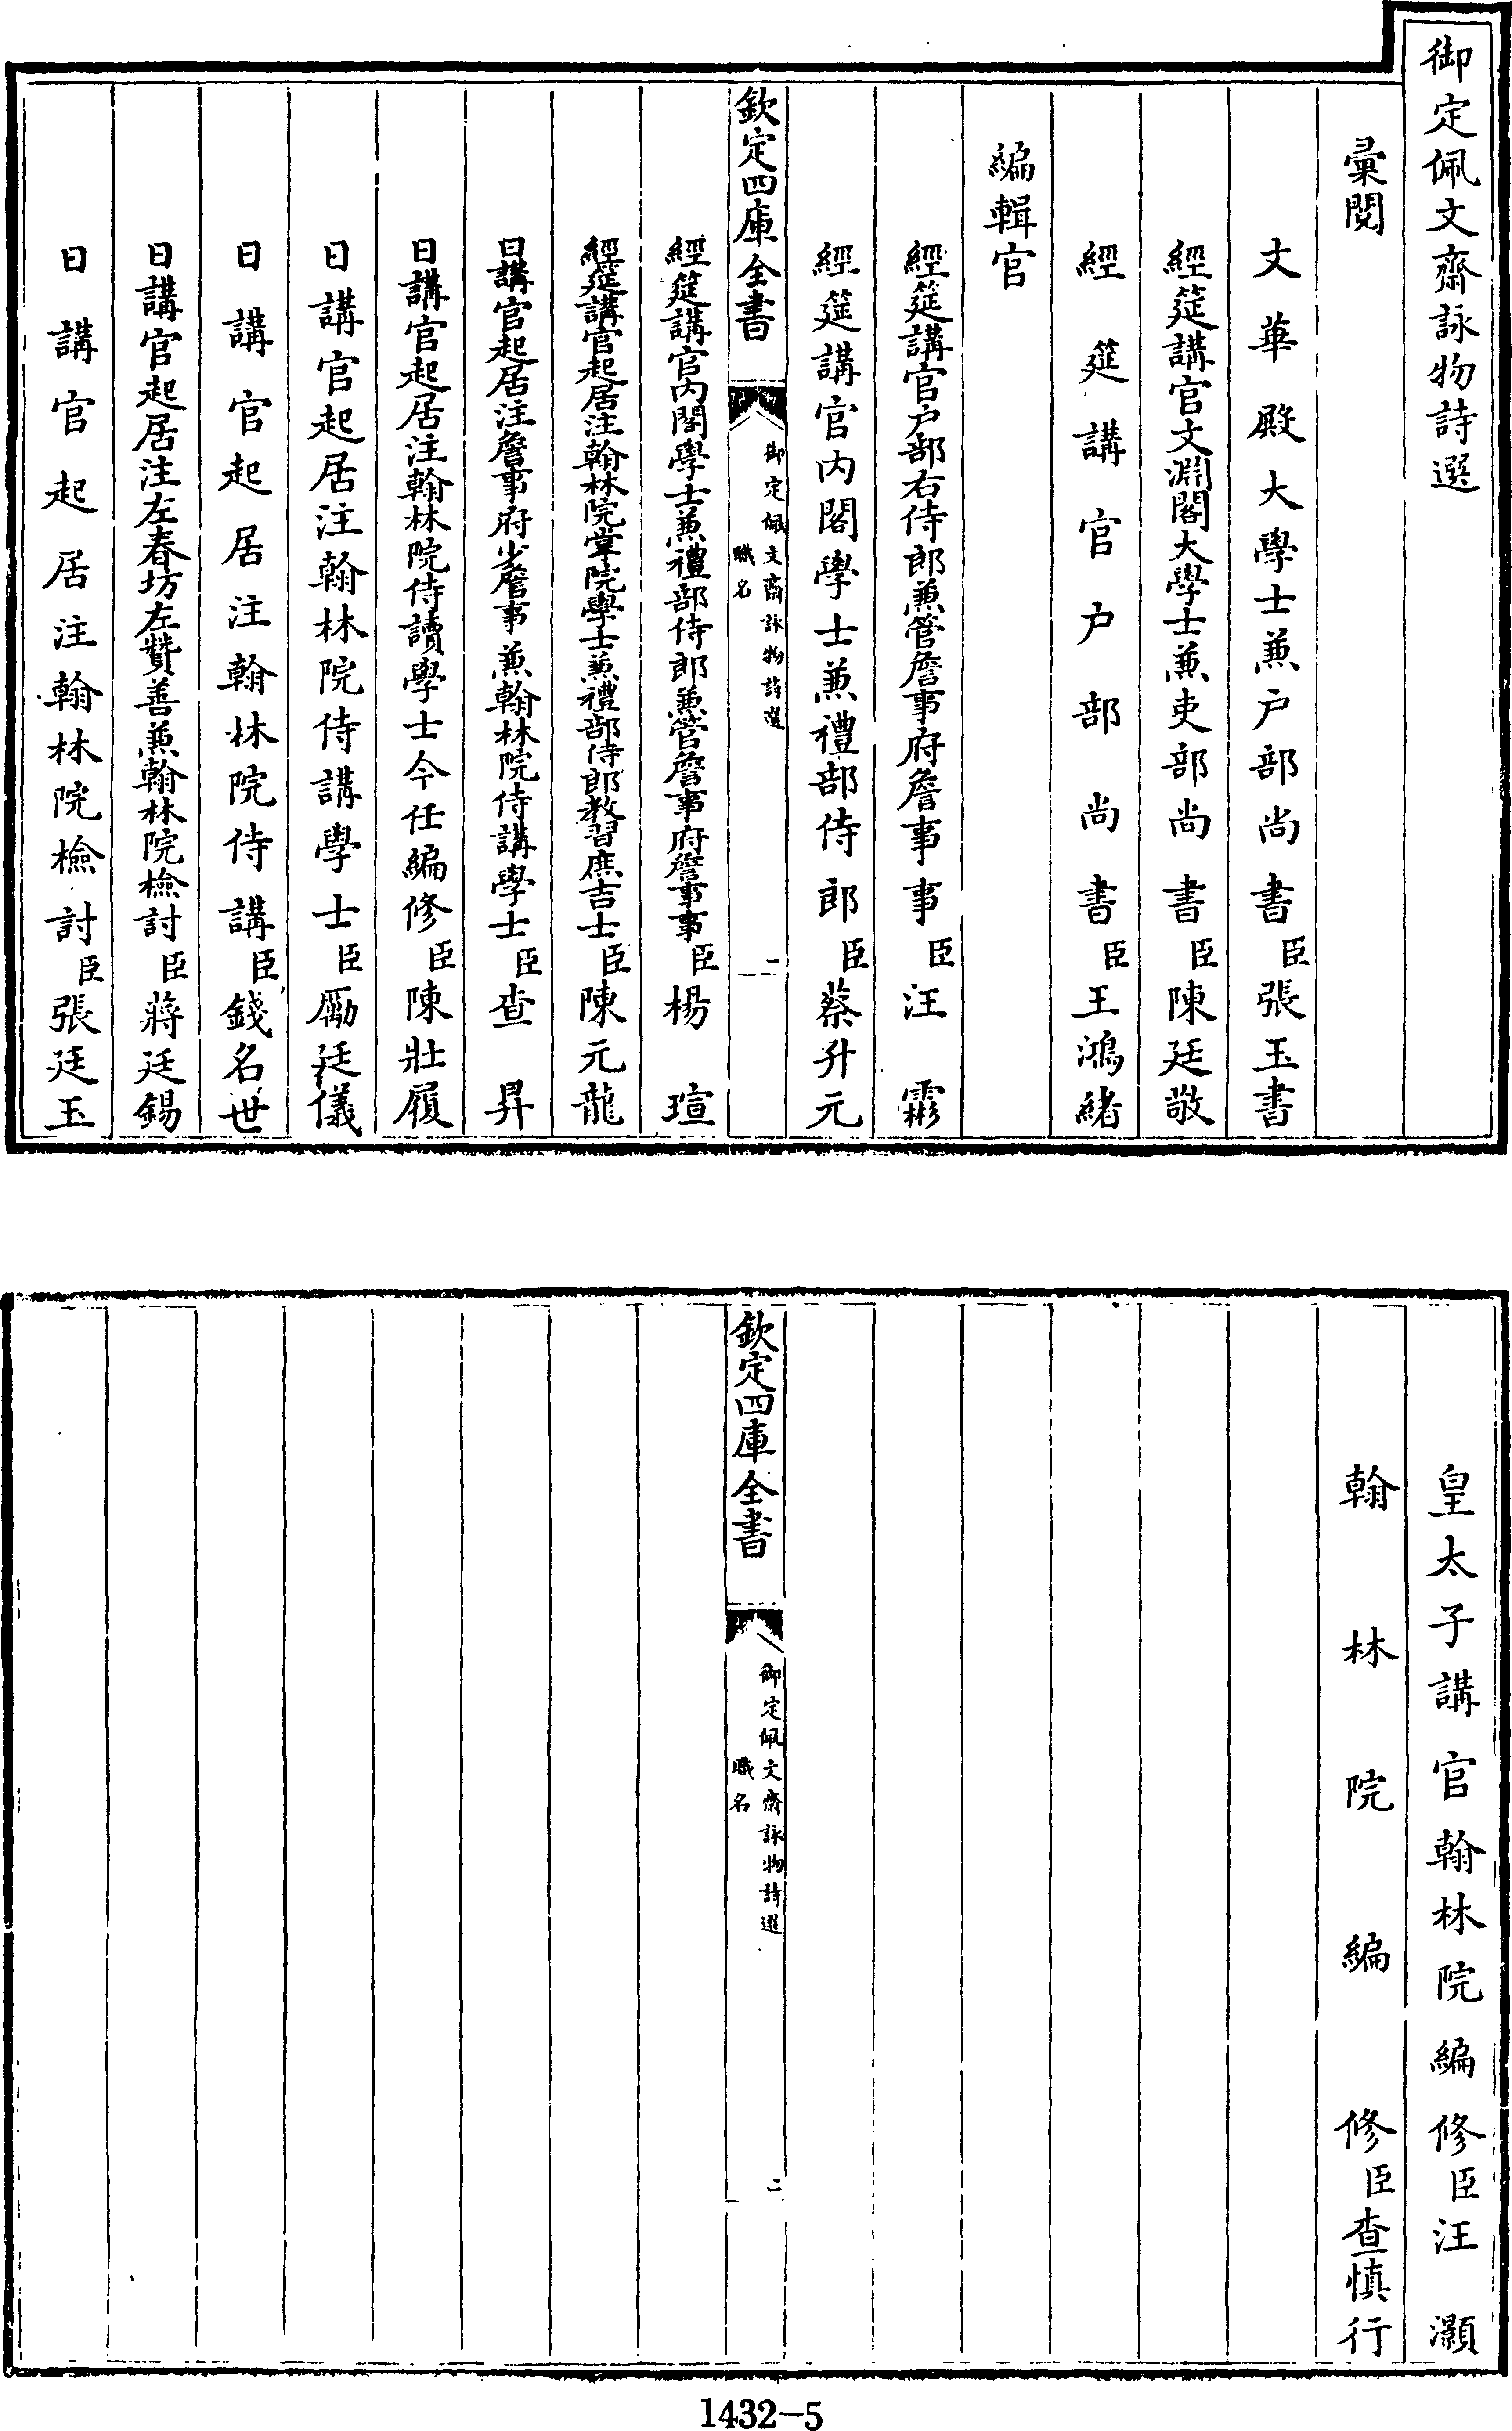 御定佩文齋詠物詩選
彙閱
文華殿大學士兼户部尚書臣張玉書
經筵講官文淵閣大學士兼吏部尚書臣陳廷敬
經筵講官户部尚書臣王鴻緒
編輯官
經筵講官户部右侍郎兼管詹事府詹事事臣汪霦
經筵講官内閣學士兼禮部侍郎臣蔡升元
欽定四庫全書
御定佩文齋詠物詩選
職名
一
經筵講官内閣學士兼禮部侍郎兼管詹事府詹事事臣楊瑄
經筵講官起居注翰林院掌院學士兼禮部侍郎教習庶吉士臣陳元龍
日講官起居注詹事府少詹事兼翰林院侍講學士臣查昇
日講官起居注翰林院侍讀學士今任編修臣陳壯履
日講官起居注翰林院侍講學士臣勵廷儀
日講官起居注翰林院侍講臣錢名世
日講官起居注左春坊左贊善兼翰林院檢討臣蔣廷錫
日講官起居注翰林院檢討臣張廷玉
皇太子講官翰林院編修臣汪灝
翰林院編修臣查慎行
欽定四庫全書
御定佩文齋詠物詩選
職名
二
1432-5